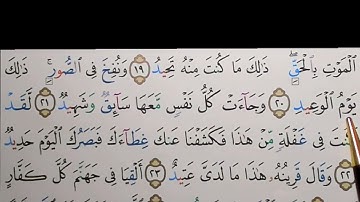 ٱلْمَوْتِ بِٱلْحَقِّ ۖ ذَٰلِكَ مَا كُنتَ مِنْهُ تَحِيدُ ١٩ وَنُفِخَ فِى ٱلصُّورِ ۚ ذَٰلِكَ
يَوْمُ ٱلْوَعِيدِ ٢٠ وَجَآءَتْ كُلُّ نَفْسٍ مَّعَهَا سَآئِقٌ وَشَهِيدٌ ٢١ لَّقَدْ
كُنتَ فِى غَفْلَةٍ مِّنْ هَٰذَا فَكَشَفْنَا عَنكَ غِطَآءَكَ فَبَصَرُكَ ٱلْيَوْمَ حَدِيدٌ
٢٢ وَقَالَ قَرِينُهُۥ هَٰذَا مَا لَدَىَّ عَتِيدٌ ٢٣ أَلْقِيَا فِى جَهَنَّمَ كُلَّ كَفَّارٍ